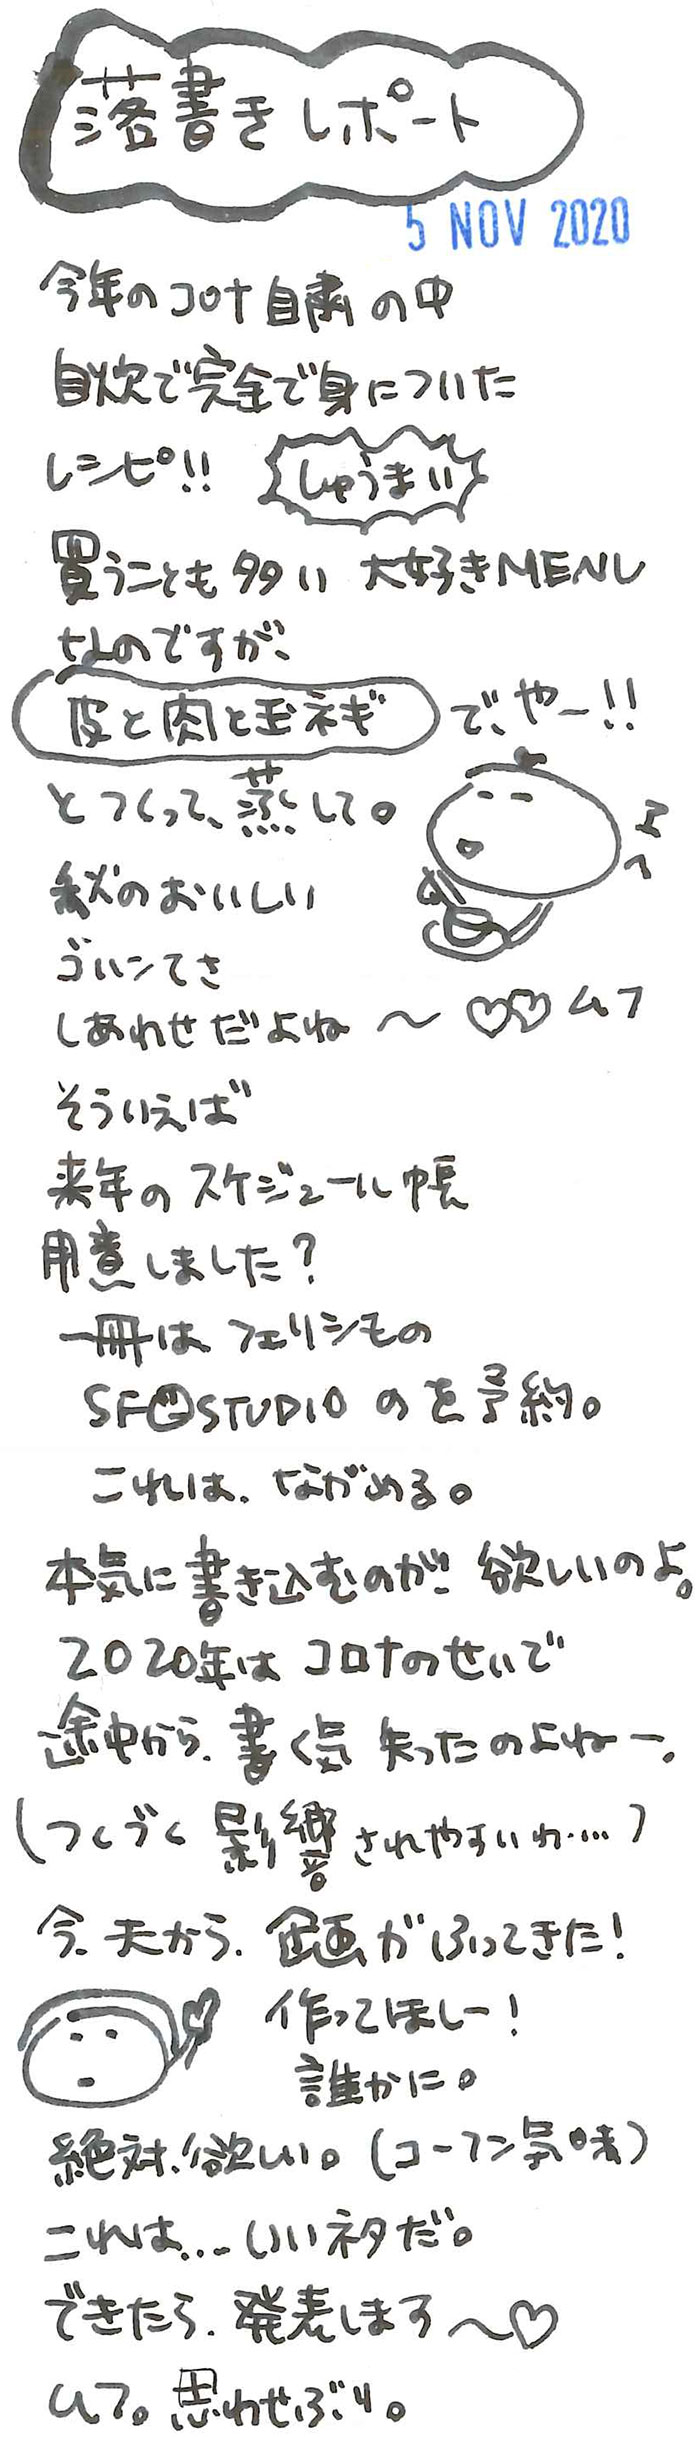 落書きレポート
5 NOV 2020
今年のコロナ自粛の中
自炊で完全で身についた
レシピ!! しゅうまい
買うことも多い 大好きMENU
なのですが、
皮と肉と玉ネギ で、やー!!
とつくって、蒸して。
秋のおいしい
ゴハンてさ
しあわせだよね〜♡♡ムフ
そういえば
来年のスケジュール帳
用意しました?
一冊は フェリシモの
SF STUDIO のを予約。
これは、ながめる。
本気に書き込むのが! 欲しいのよ。
2020年は コロナのせいで
途中から、書く気 失ったのよねー。
(つくづく 影響されやすいわ....)
今、天から、企画がふってきた!
作ってほしー!
誰かに。
絶対、欲しい。(コーフン気味)
これは... いいネタだ。
できたら、発表します〜♡
ムフ。思わせぶり。